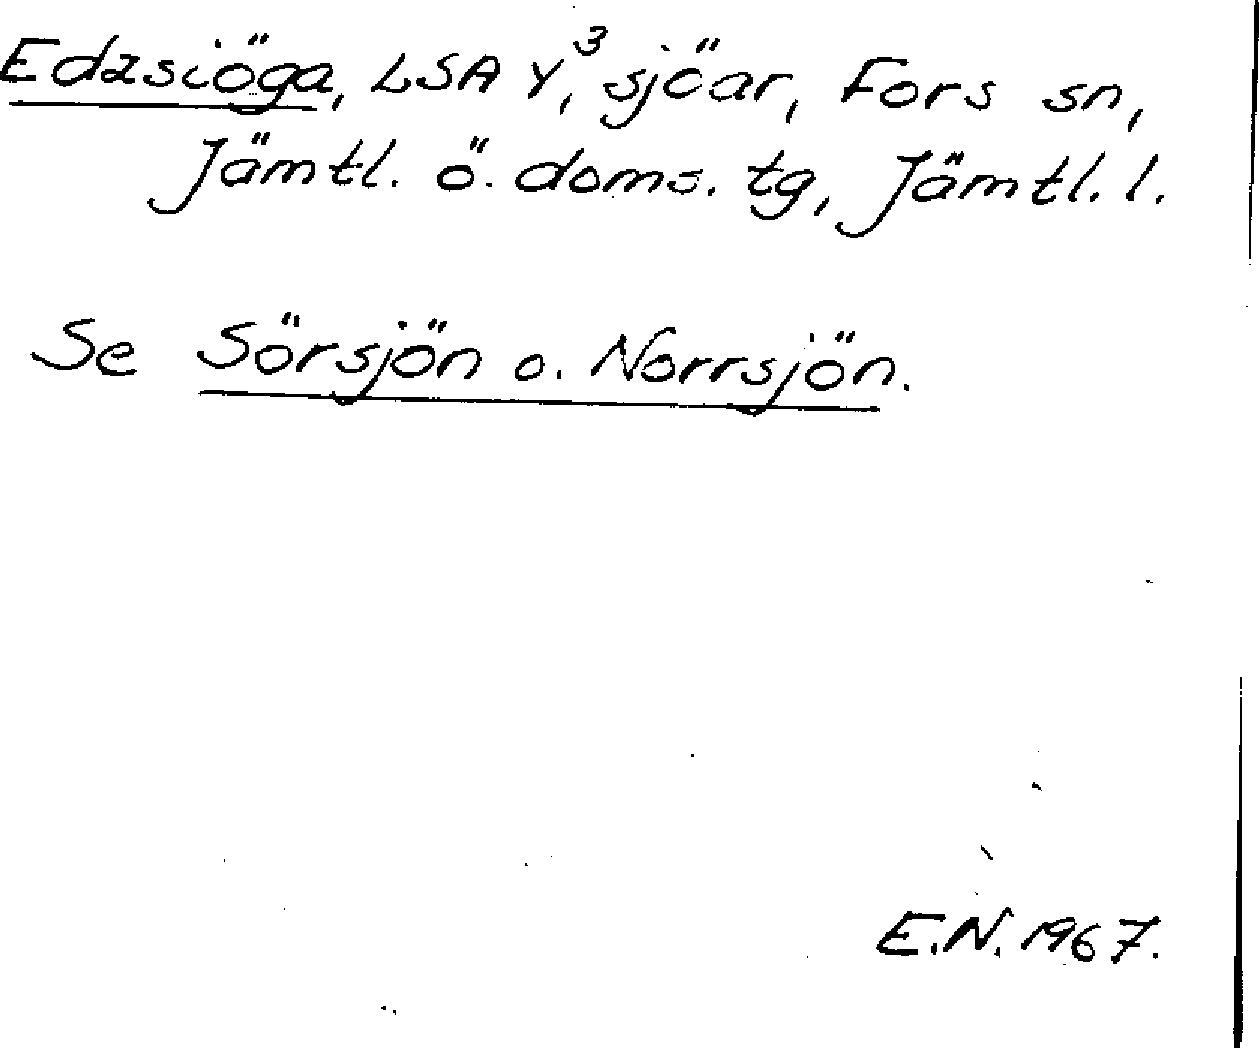 Edzsiöga, LSA Y,³ sjöar, Fors sn,
Jämtl. ö. doms. tg, Jämtl. l.
Se Sörsjön o. Norrsjön.
E.N. 1967.